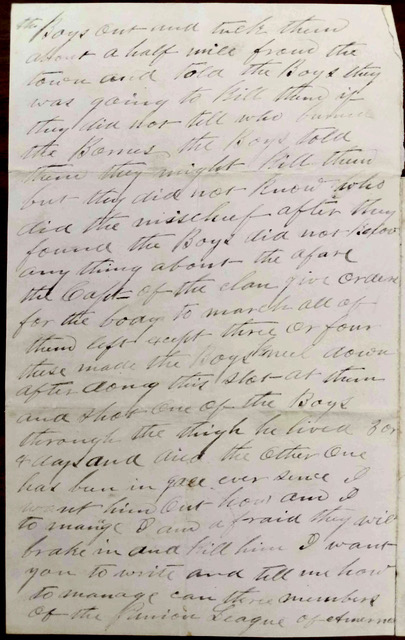 the Boys out and tuck them
about a half mile from the
town and told the Boys they
was going to Kill them if
they did not tell who burned
the Bornes the Boys told
them they might Kill them
but they did not Know who
did the misschief after they
found the Boys did not Know
any thing about the afare
the Capt of the clan give orders
for the body to march all of
them left except three or four
these made the Boys kneel down
after doing this shot at them
and shot one of the Boys
through the thigh he lived 3 or
4 days and died the other one
has bun in jale ever since I
want him out how am I
to mange I am afraid they will
brake in and Kill him I want
you to write and tell me how
to manage can these members
of the Union League of America